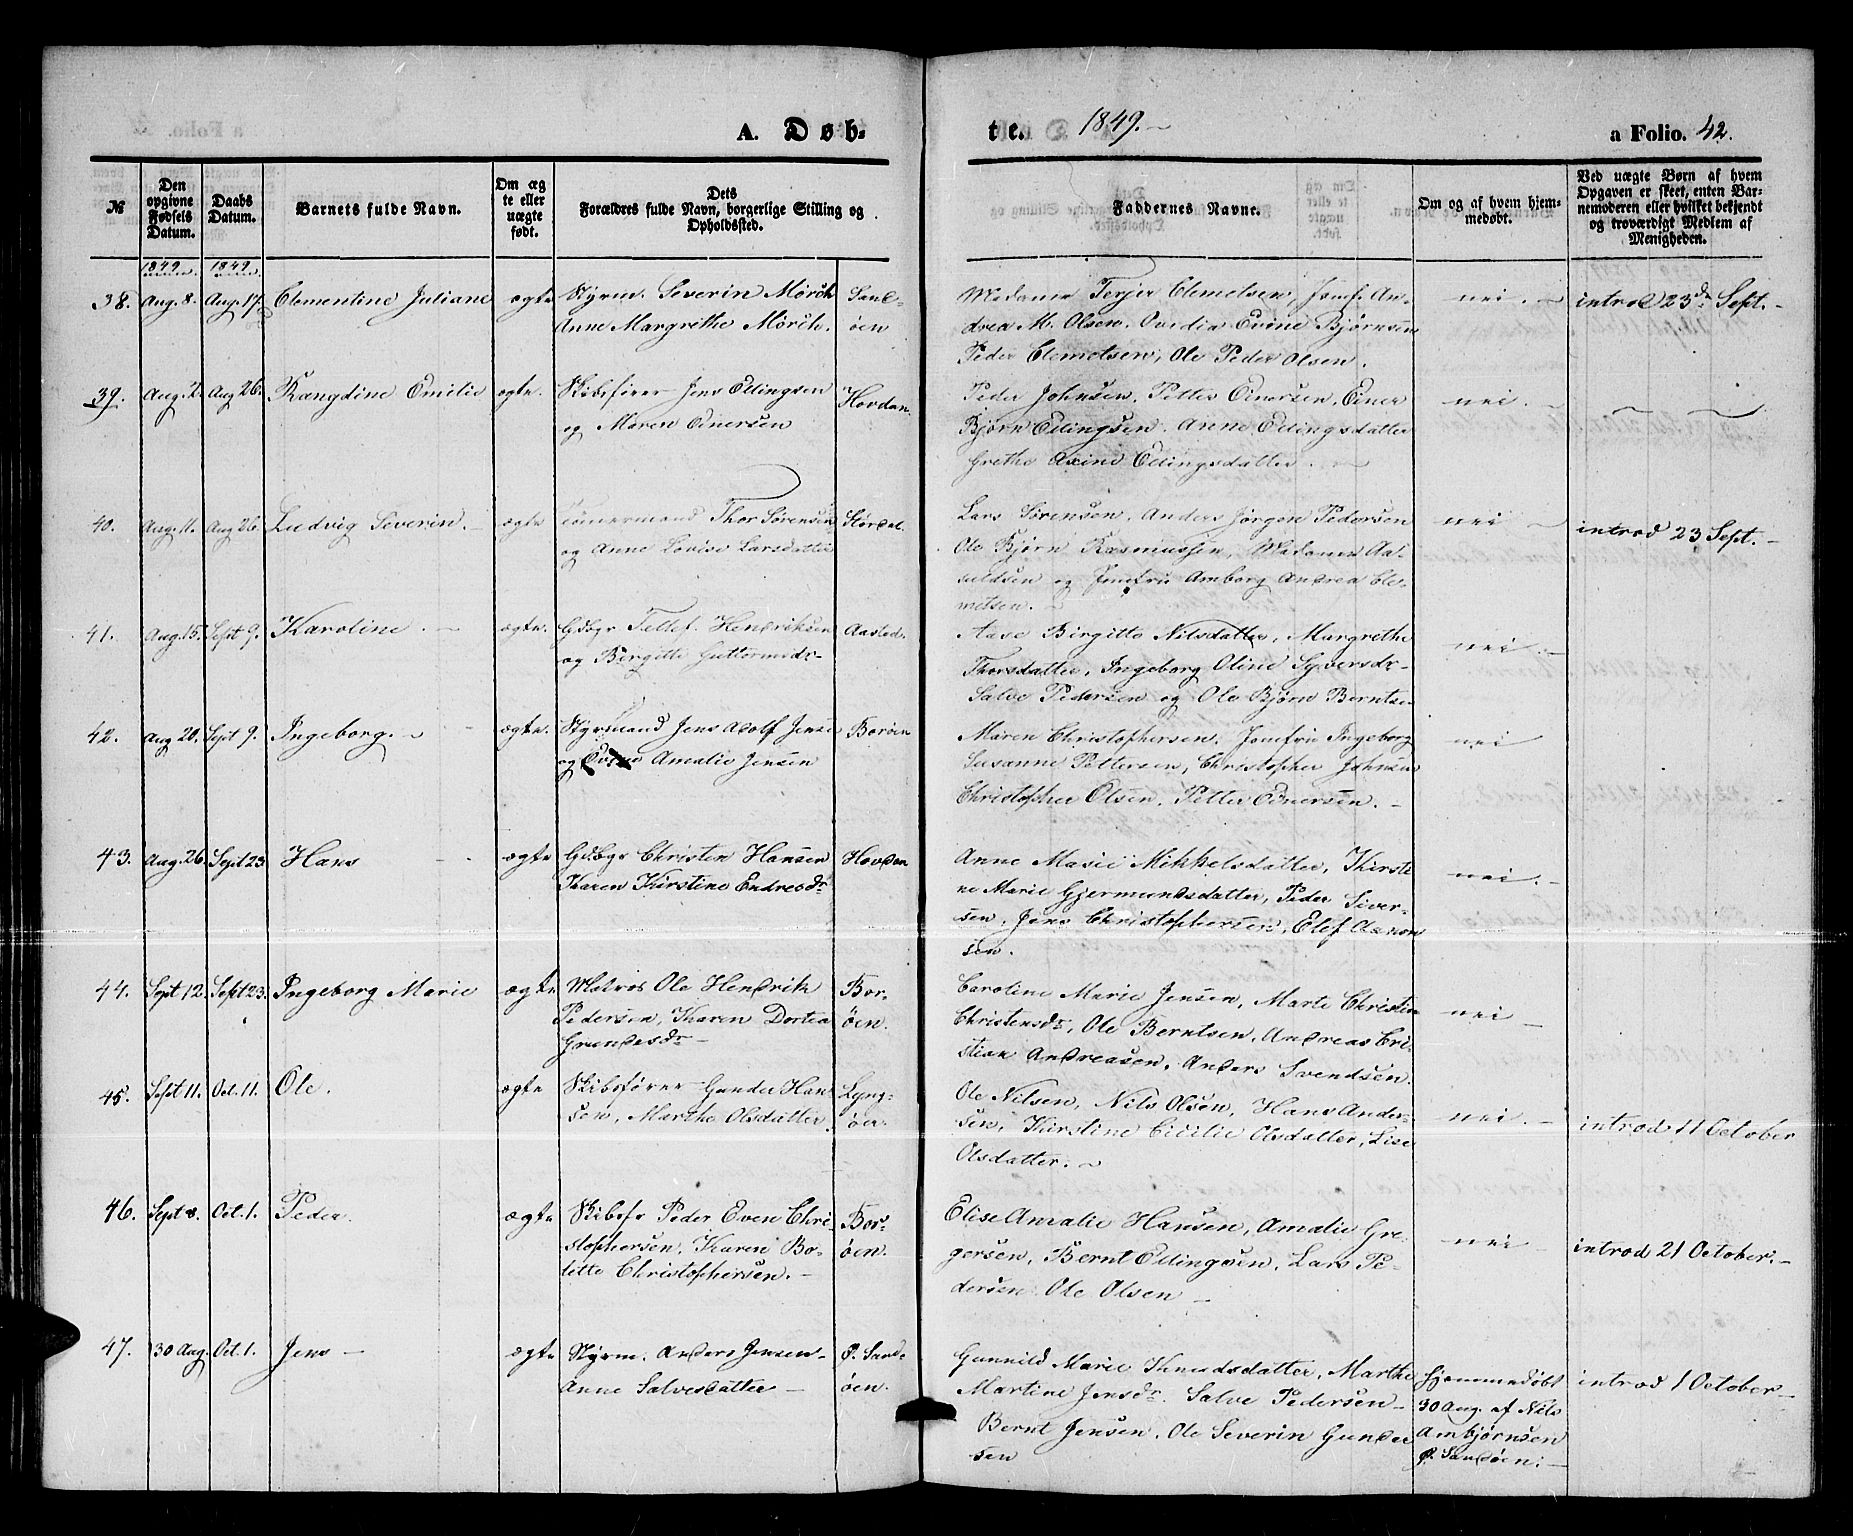 A. Døb=
te. 1849.
a Folio. 42.
№
Den opgivne Fødsels Datum.
Daabs Datum.
Barnets fulde Navn.
Om ægte eller uægte født.
Dets Forældres fulde Navn, borgerlige Stilling og Opholdssted.
Faddernes Navne.
Om og af hvem hjemmedøbt.
Ved uægte Børn af hvem Opgaven er skeet, enten Barnemoderen eller hvilket bekjendt og troværdigt Medlem af Menigheden.
1849. 1849.
38. Aug. 8. Aug. 17. Clementine Juliane ægte Styrm. Severin Mörch Sand-
Anne Margrethe Mörch. öen
Madame Terjer Clemetsen, Jomf. An-
drea M. Olsen. Ovidia Evine Bjørnsen
Peder Clemetsen, Ole Peder Olsen.
nei. introd 23de Sept.
39. Aug. 2. Aug 26. Rangdine Emilie ægte. Skibsfører Jens Edingsen Hovdan
og Maren Einersen
Peder Johnsen, Petter Einersen, Einer
Bjørn Edingsen. Anne Edingsdatter
Grethe Axine Edingsdatter.
nei.
40. Aug. 11. Aug 26. Ludvig Severin. ægte Tømermand Thor Sørensen Stördal.
og Anne Lovise Larsdatter
Lars Sörensen, Anders Jörgen Pedersen
Ole Bjørn Rasmussen, Madame Aa-
suldsen og Jomfru Amborg Andrea Cle-
metsen.
nei introd 23 Sept.
41. Aug. 15. Sept 9. Karoline ægte. Gdbgr Tellef Hendriksen Aasted.
og Birgitte Guttormsdr
Aase Birgitte Nilsdatter, Margrethe
Thorsdatter, Ingeborg Oline Syversdr
Salve Pedersen og Ole Bjørn Berntsen
nei.
42. Aug 20. Sept 9. Ingeborg. ægte. Styrmand Jens Adolf Jensen Boröen
og Amalie Jensen
Maren Christophersen. Jomfru Ingeborg
Susanne Pettersen, Christopher Johnsen
Christopher Olsen. Petter Einersen.
nei
43. Aug. 26. Sept 23 Hans ægte Gdbgr Christen Hansen Hovden
Karen Kirstine Endresdr
Anne Marie Mikkelsdatter, Kirsti
ne Marie Gjermundsdatter, Peder Siver-
sen, Jens Christophersen, Elef Aanon
sen.
nei.
44. Sept 12. Sept 23. Ingeborg Marie ægte Matros Ole Hendrik Bor-
Pedersen, Karen Dortea öen.
Grundesdr
Caroline Marie Jensen, Marte Christine
Christensdr, Ole Berntsen, Andreas Cri-
stian Andreasen, Anders Svendsen.
nei
45. Sept 11. Oct. 11. Ole. ægte Skibsfører Gunder Han- Lyng-
sen, Marthe Olsdatter. öer.
Ole Nilsen, Nils Olsen, Hans Ander-
sen, Kirstine Cicilie Olsdatter, Lise
Olsdatter.
nei. introd 11 October
46. Sept 8. Oct. 1. Peder. ægte Skibsfr Peder Even Chri- Bor-
stophersen, Karen Bo- öen.
lette Christophersen.
Elise Amalie Hansen, Amalie Gre-
gersen, Bernt Edingsen, Lars Pe-
dersen. Ole Olsen
nei introd 21 October.
47. 30 Aug. Oct. 1. Jens ægte Styrm. Anders Jensen Ø. Sand-
Anne Salvesdatter öen.
Gunnild Marie Knudsdatter, Marthe
Martine Jensdr. Salve Pedersen
Bernt Jensen, Ole Severin Gunder
sen
hjemmedøbt
30 Aug. af Nils
Ambjørnsen
Ø. Sandöen.
introd 1 October